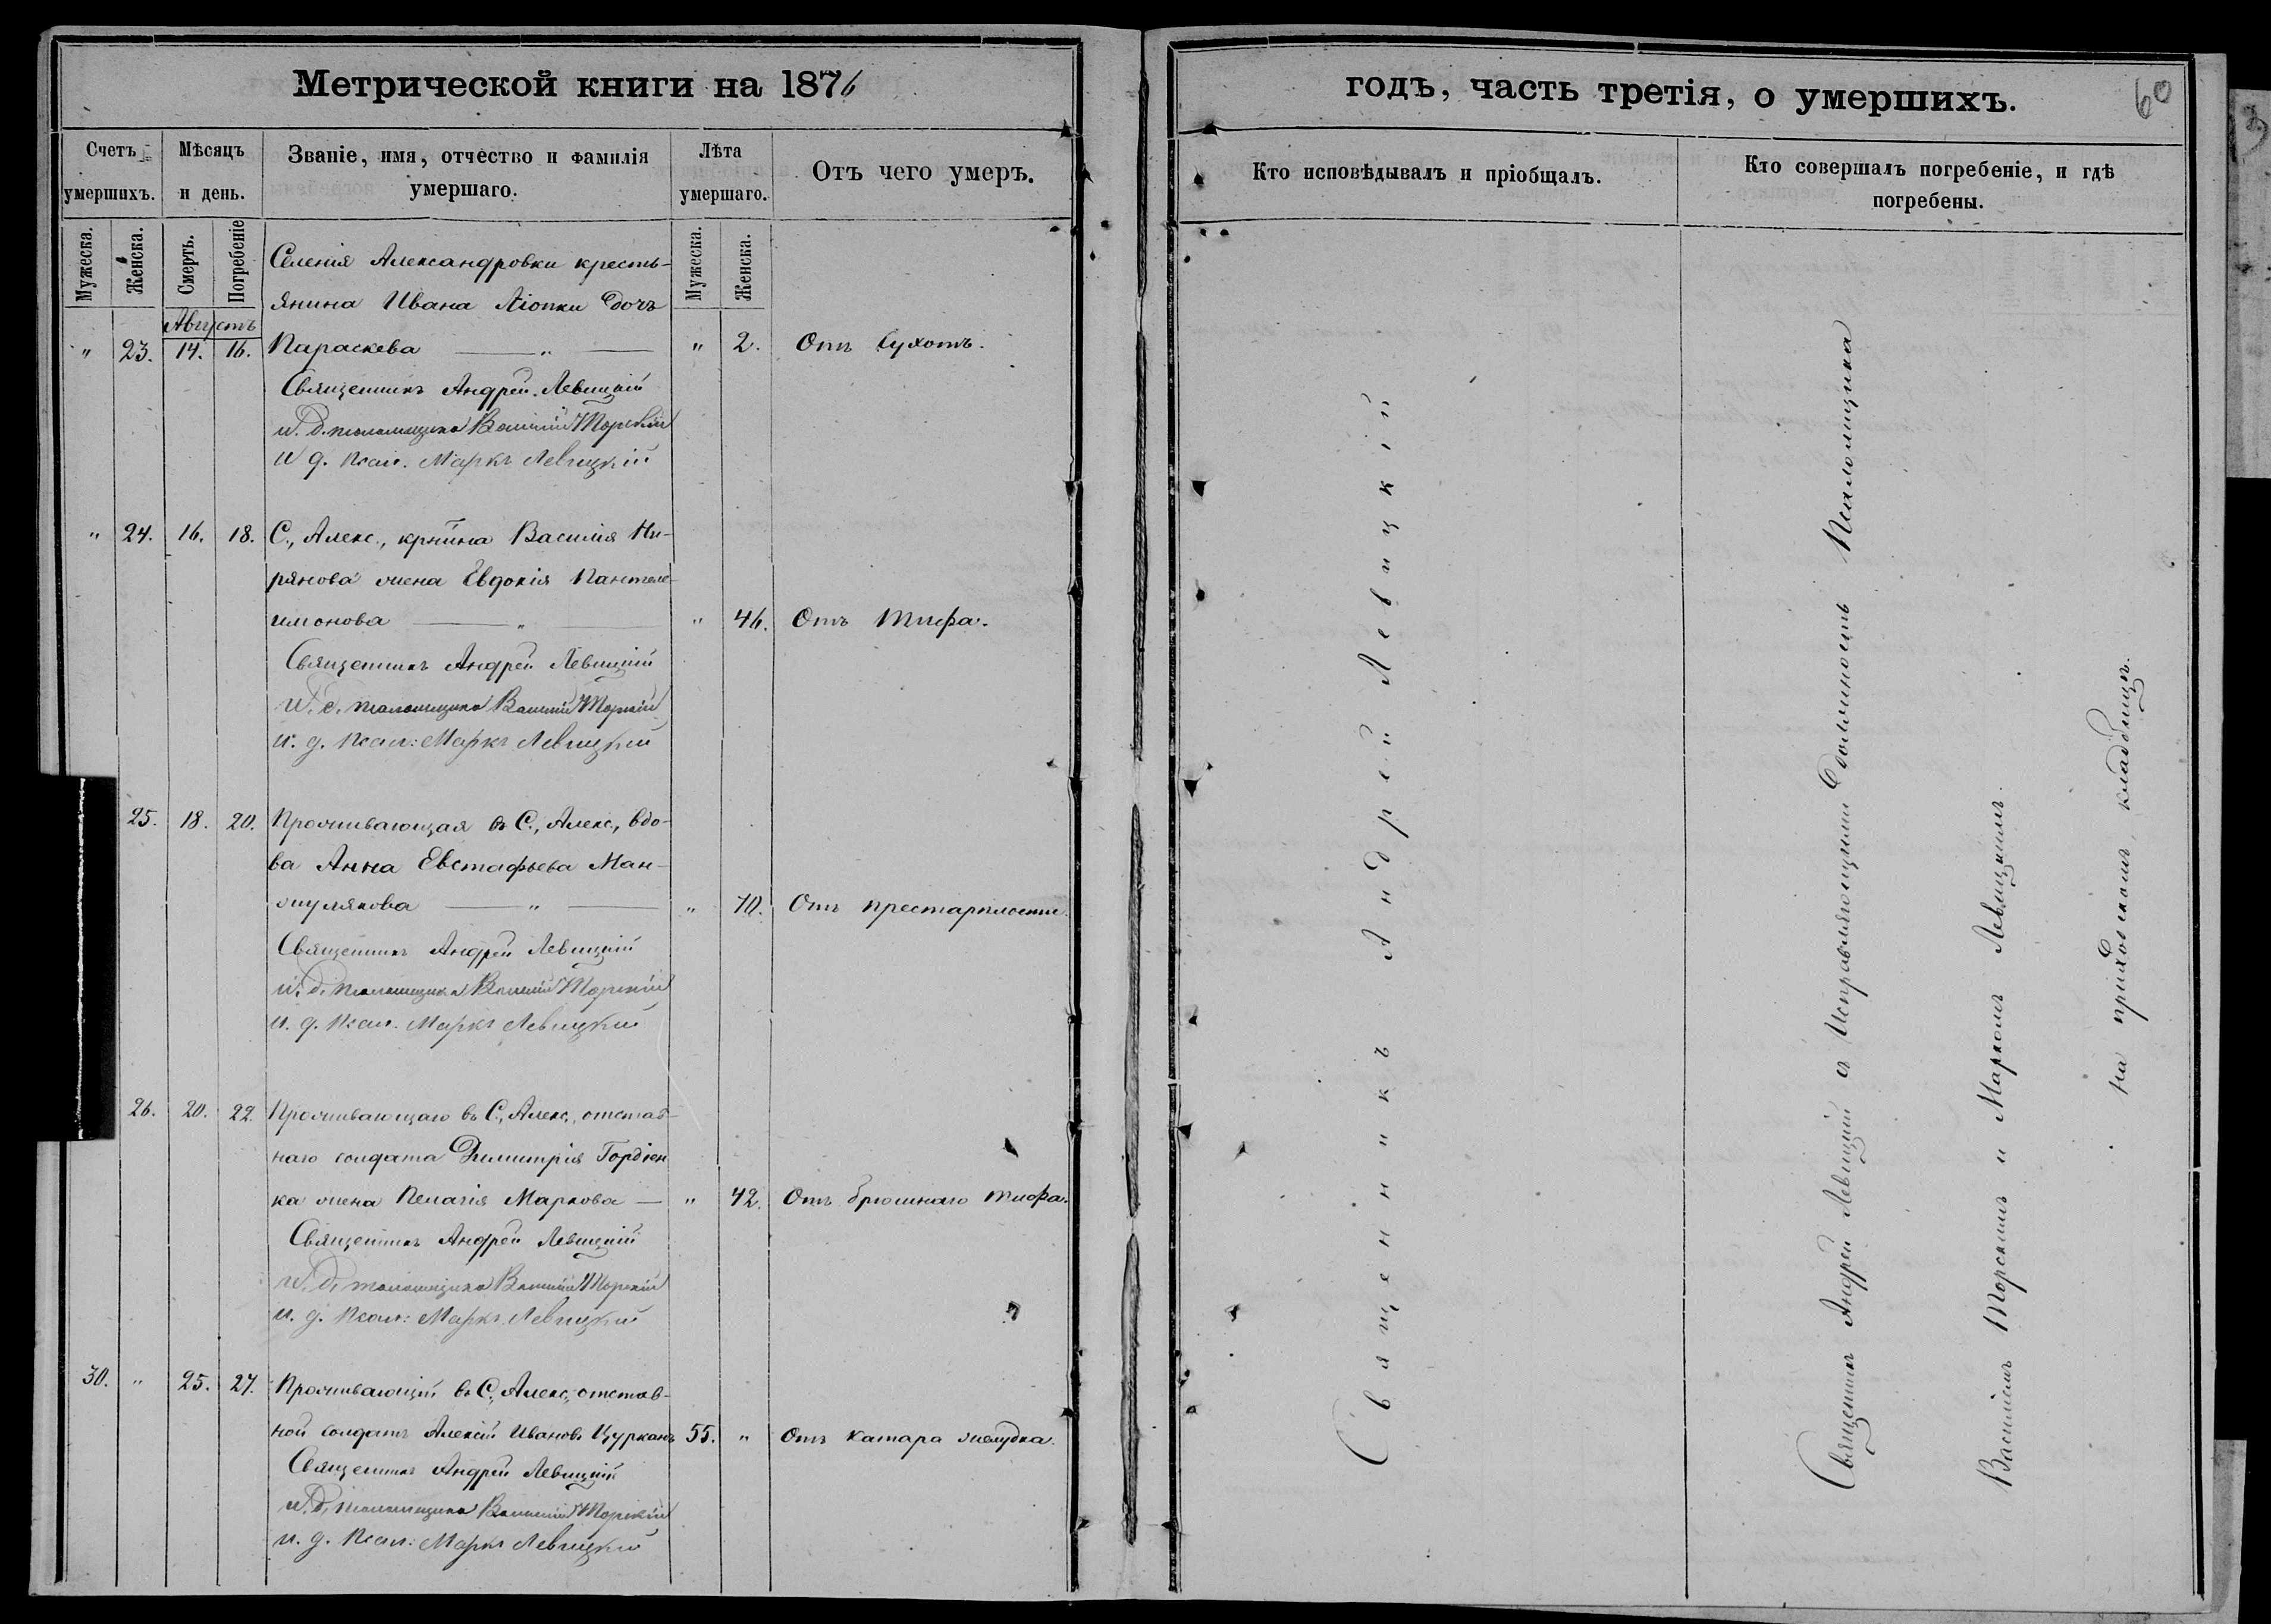 Метрической книги на 1876
Счетъ умершихъ.
Мѣсяцъ и день.
Званіе, имя, отчество и фамилія умершаго.
Лѣта умершаго.
Отъ чего умеръ.
Мужеска.
Женска.
Смерть.
Погребеніе
Мужеска.
Женска.
Селенія Александровки кресть-
янина Ивана Ліопки дочь
Августъ
" 23. 14. 16. Параскева — " — " 2. Отъ Сухотъ.
Священникъ Андрей Левицкій
и. д. псаломщика Василій Торскій
и д. псал. Маркъ Левицкій
" 24. 16. 18. С., Алекс., крнина Василія
рянова жена Евдокія Пантеле-
имонова — " — " 46. Отъ Тифа.
Священникъ Андрей Левицкій
и. д. псаломщика Василій Торскій
и. д. псал: Маркъ Левицкій
25. 18. 20. Проживающая въ С., Алекс., вдо-
ва Анна Евстафьева Ман-
— " — " 70. Отъ престарѣлости.
Священникъ Андрей Левицкій
и. д. псаломщика Василій Торскій
и. д. псал. Маркъ Левицкій
26. 20. 22. Проживающаго въ С., Алекс., отстав-
наго солдата Димитрія Гордіен
ка жена Пелагія Маркова — " 42. Отъ брюшнаго тифа.
Священникъ Андрей Левицкій
и. д. псаломщика Василій Торскій
и. д. псал: Маркъ Левицкій
30. " 25. 27. Проживающій въ С., Алекс., отстав-
ной солдатъ Алексій Ивановъ Цурканъ 55. " Отъ катара желудка.
Священникъ Андрей Левицкій
и. д. псаломщика Василій Торскій
и. д. псал: Маркъ Левицкій
годъ, часть третія, о умершихъ.
60
Кто исповѣдывалъ и пріобщалъ.
Кто совершалъ погребеніе, и гдѣ погребены.
Священникъ Андрей Левицкій
Священникъ Андрей Левицкій съ Исправляющими должность Псаломщика
Василіемъ Торскимъ и Маркомъ Левицкимъ.
на приходскомъ кладбищѣ.